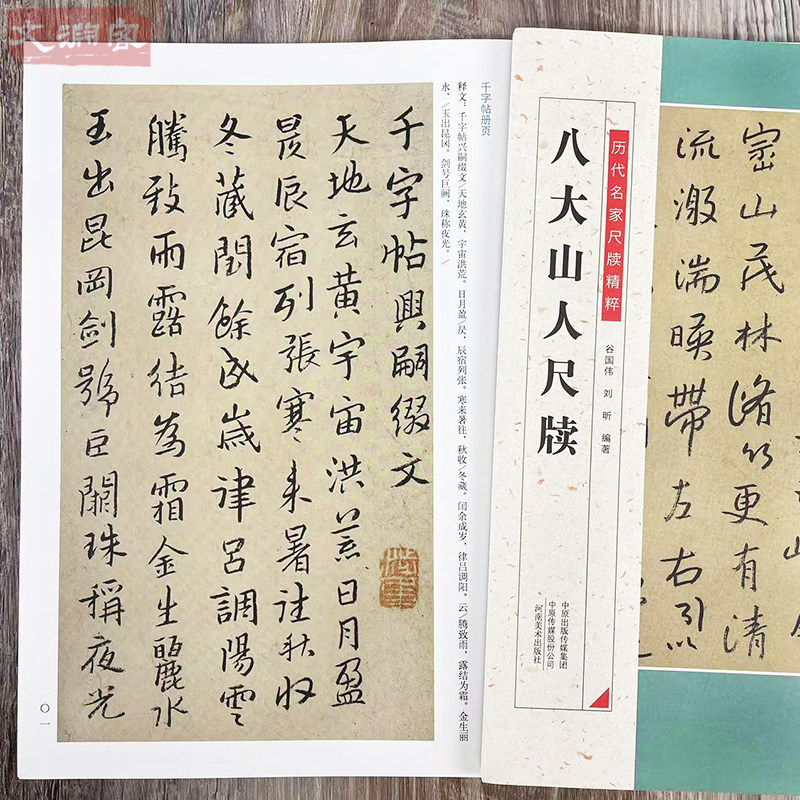 千字帖册页
释文：千字帖兴嗣缀文/天地玄黄，宇宙洪荒。日月盈/昃，辰宿列张。寒来暑往，秋收/冬藏。闰余成岁，律吕调阳。云/腾致雨，露结为霜。金生丽
水，/玉出昆冈。剑号巨阙，珠称夜光。/
千字帖興嗣綴文
天地玄黄宇宙洪荒日月盈
昃辰宿列張寒来暑往秋收
冬藏閏餘成歲律呂調陽雲
騰致雨露結為霜金生麗水
玉出昆岡劍號巨闕珠稱夜光
〇一
历代名家尺牍精粹
八大山人尺牍
谷国伟 刘昕 编著
中原出版传媒集团
中原传媒股份公司
河南美术出版社
山茂林脩竹更有清
流激湍暎帶左右引以